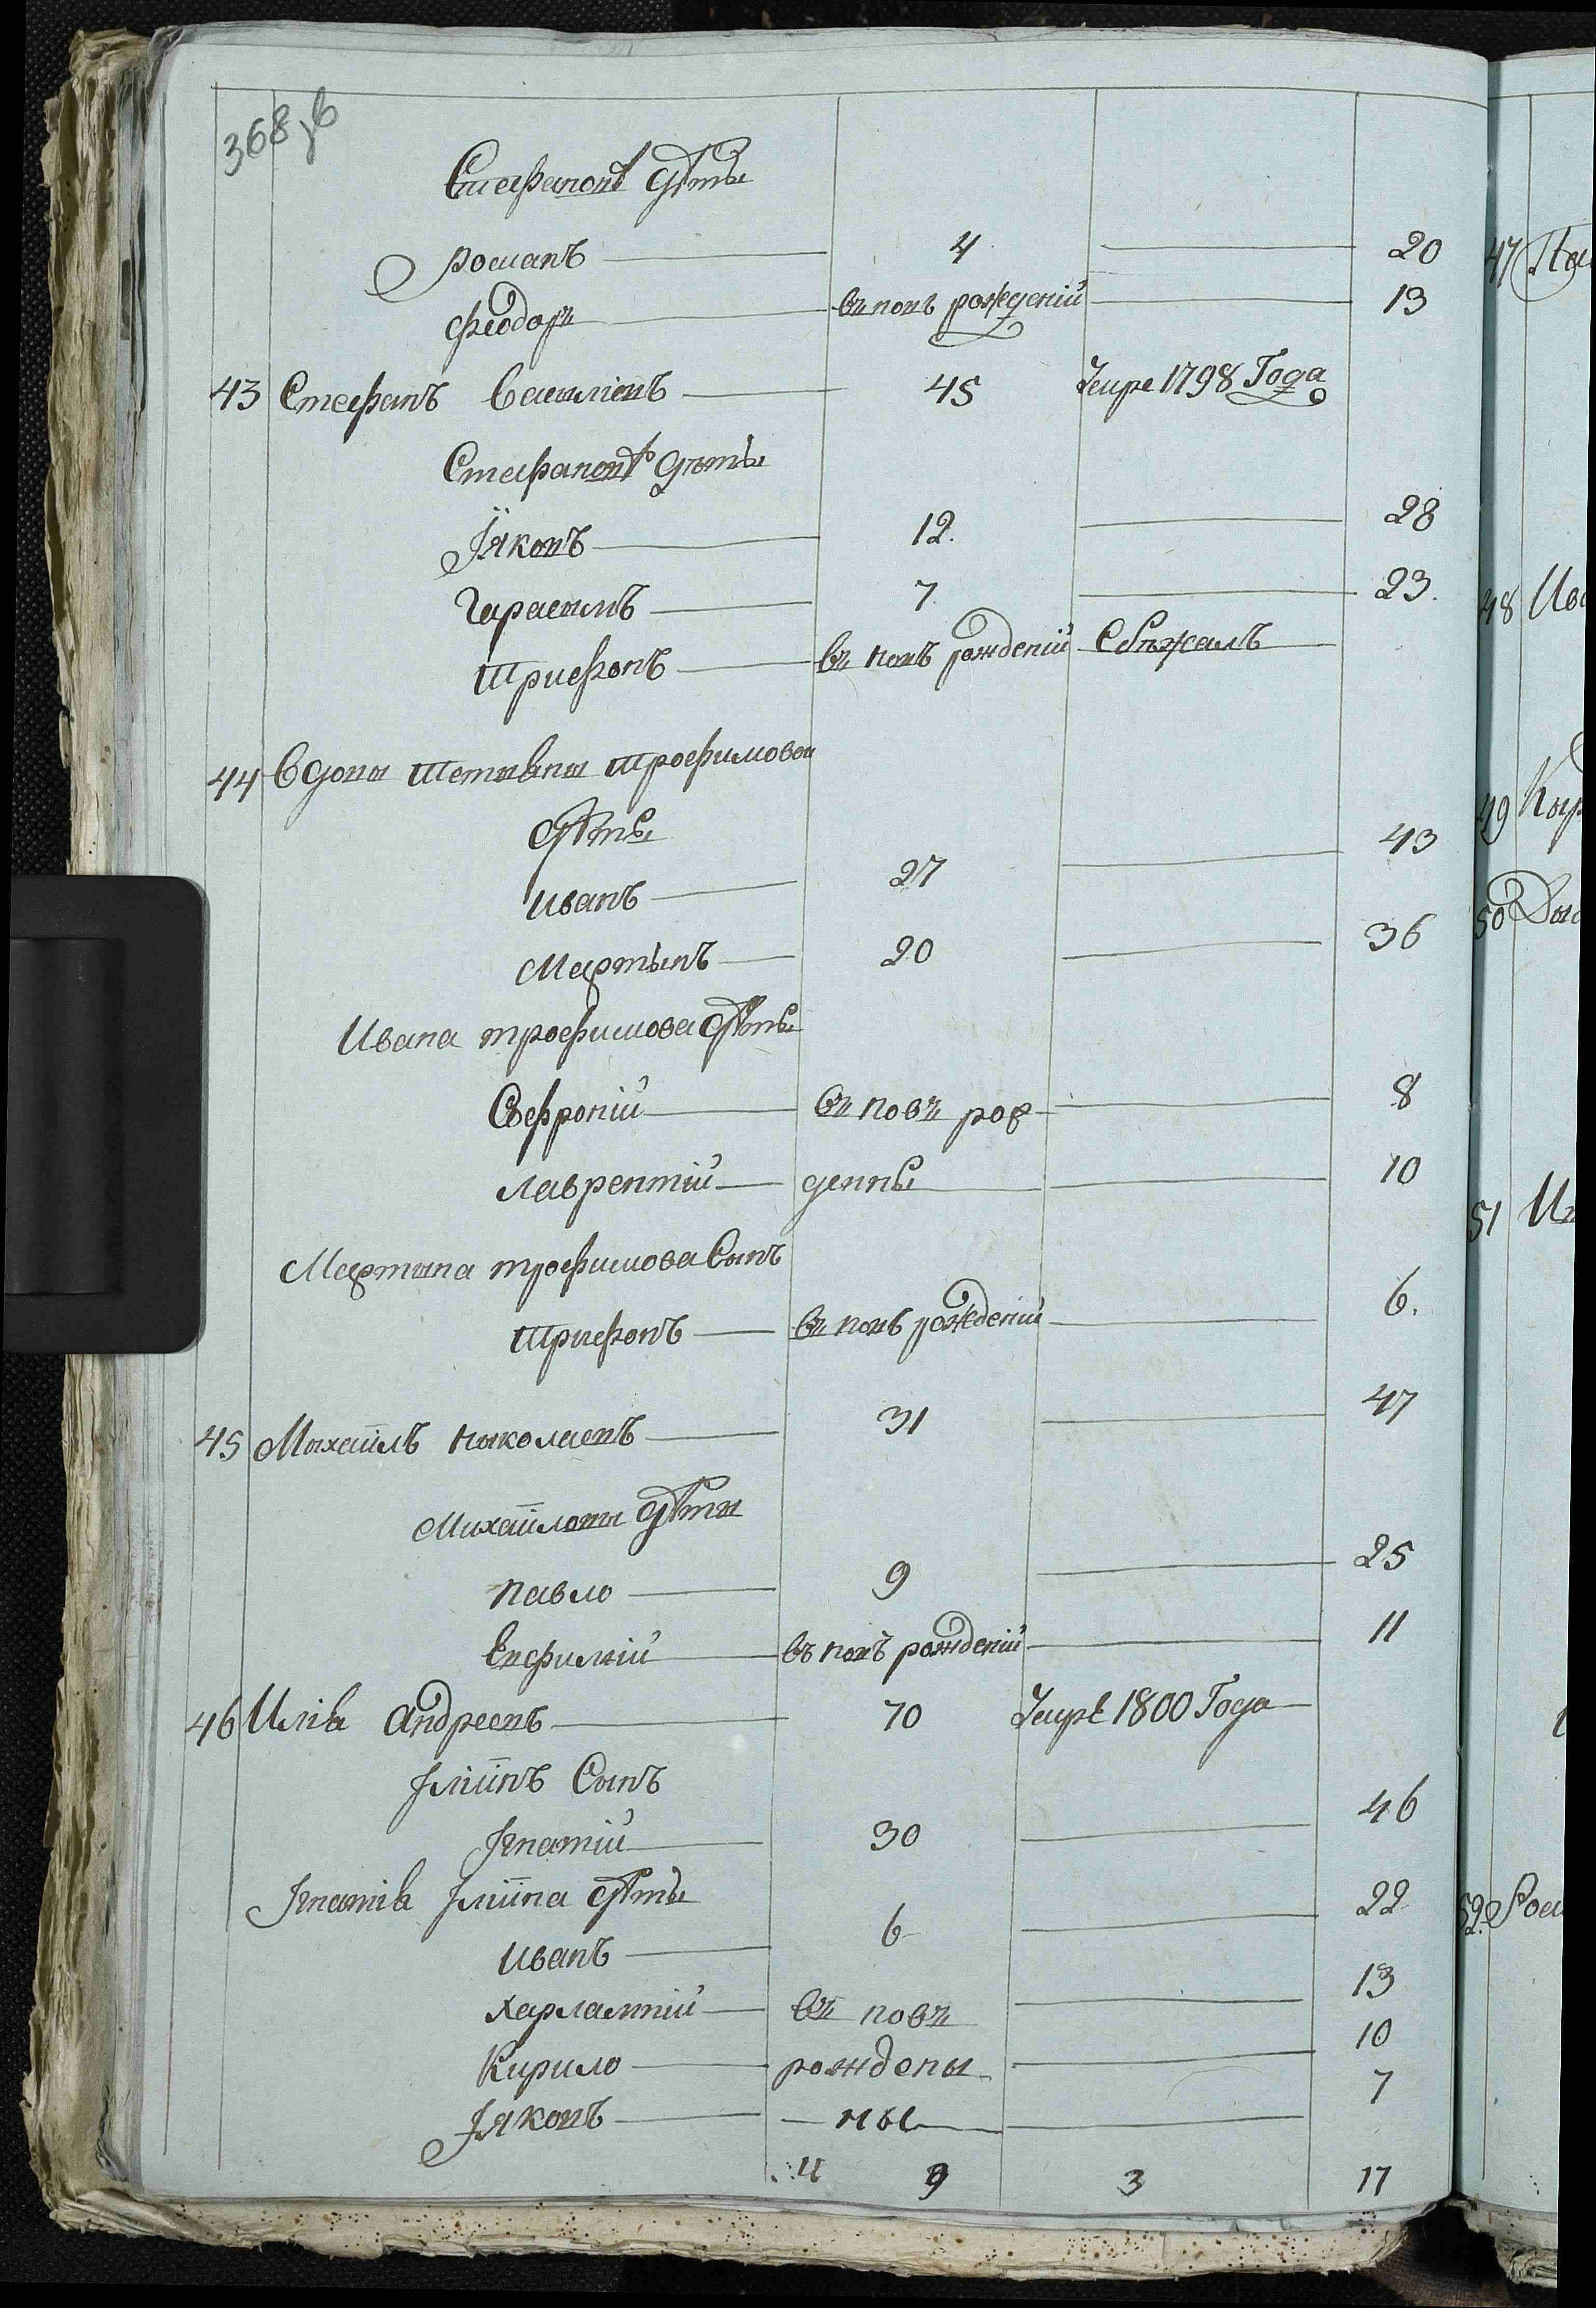 368 зв
Стефановы дѣты
романъ 4 20
Феодоръ въ новъ рожденій 13
43 Стефанъ Василіевъ 45 Умре 1798 Года
Стефановы дѣты
Іяковъ 12. 28
Гарасимъ 7 23.
Трифонъ въ новъ рожденій Сбѣжалъ
44 Вдовы Тетяны Трофимовой
дѣты
иванъ 27 43
Мартынъ 20 36
Ивана трофимова дѣты
Софроній въ новъ рож 8
лаврентій денны 10
Мартына трофимова Сынъ
Трифонъ въ новъ рожденій 6.
45 Михаіилъ николаевъ 31 47
Михаіиловы дѣти
павло 9 25
Евфимій въ новъ рожденій 11
46 Иліа андреевъ 70 Умре 1800 Года
Іліинъ Сынъ
Ігнатій 30 46
Ігнатіа Іліина дѣты
иванъ 6 22
харлампій въ новъ 13
Кирило рождены 10
Іяковъ ны 7
9 3 17
47
48
49
50
51
52